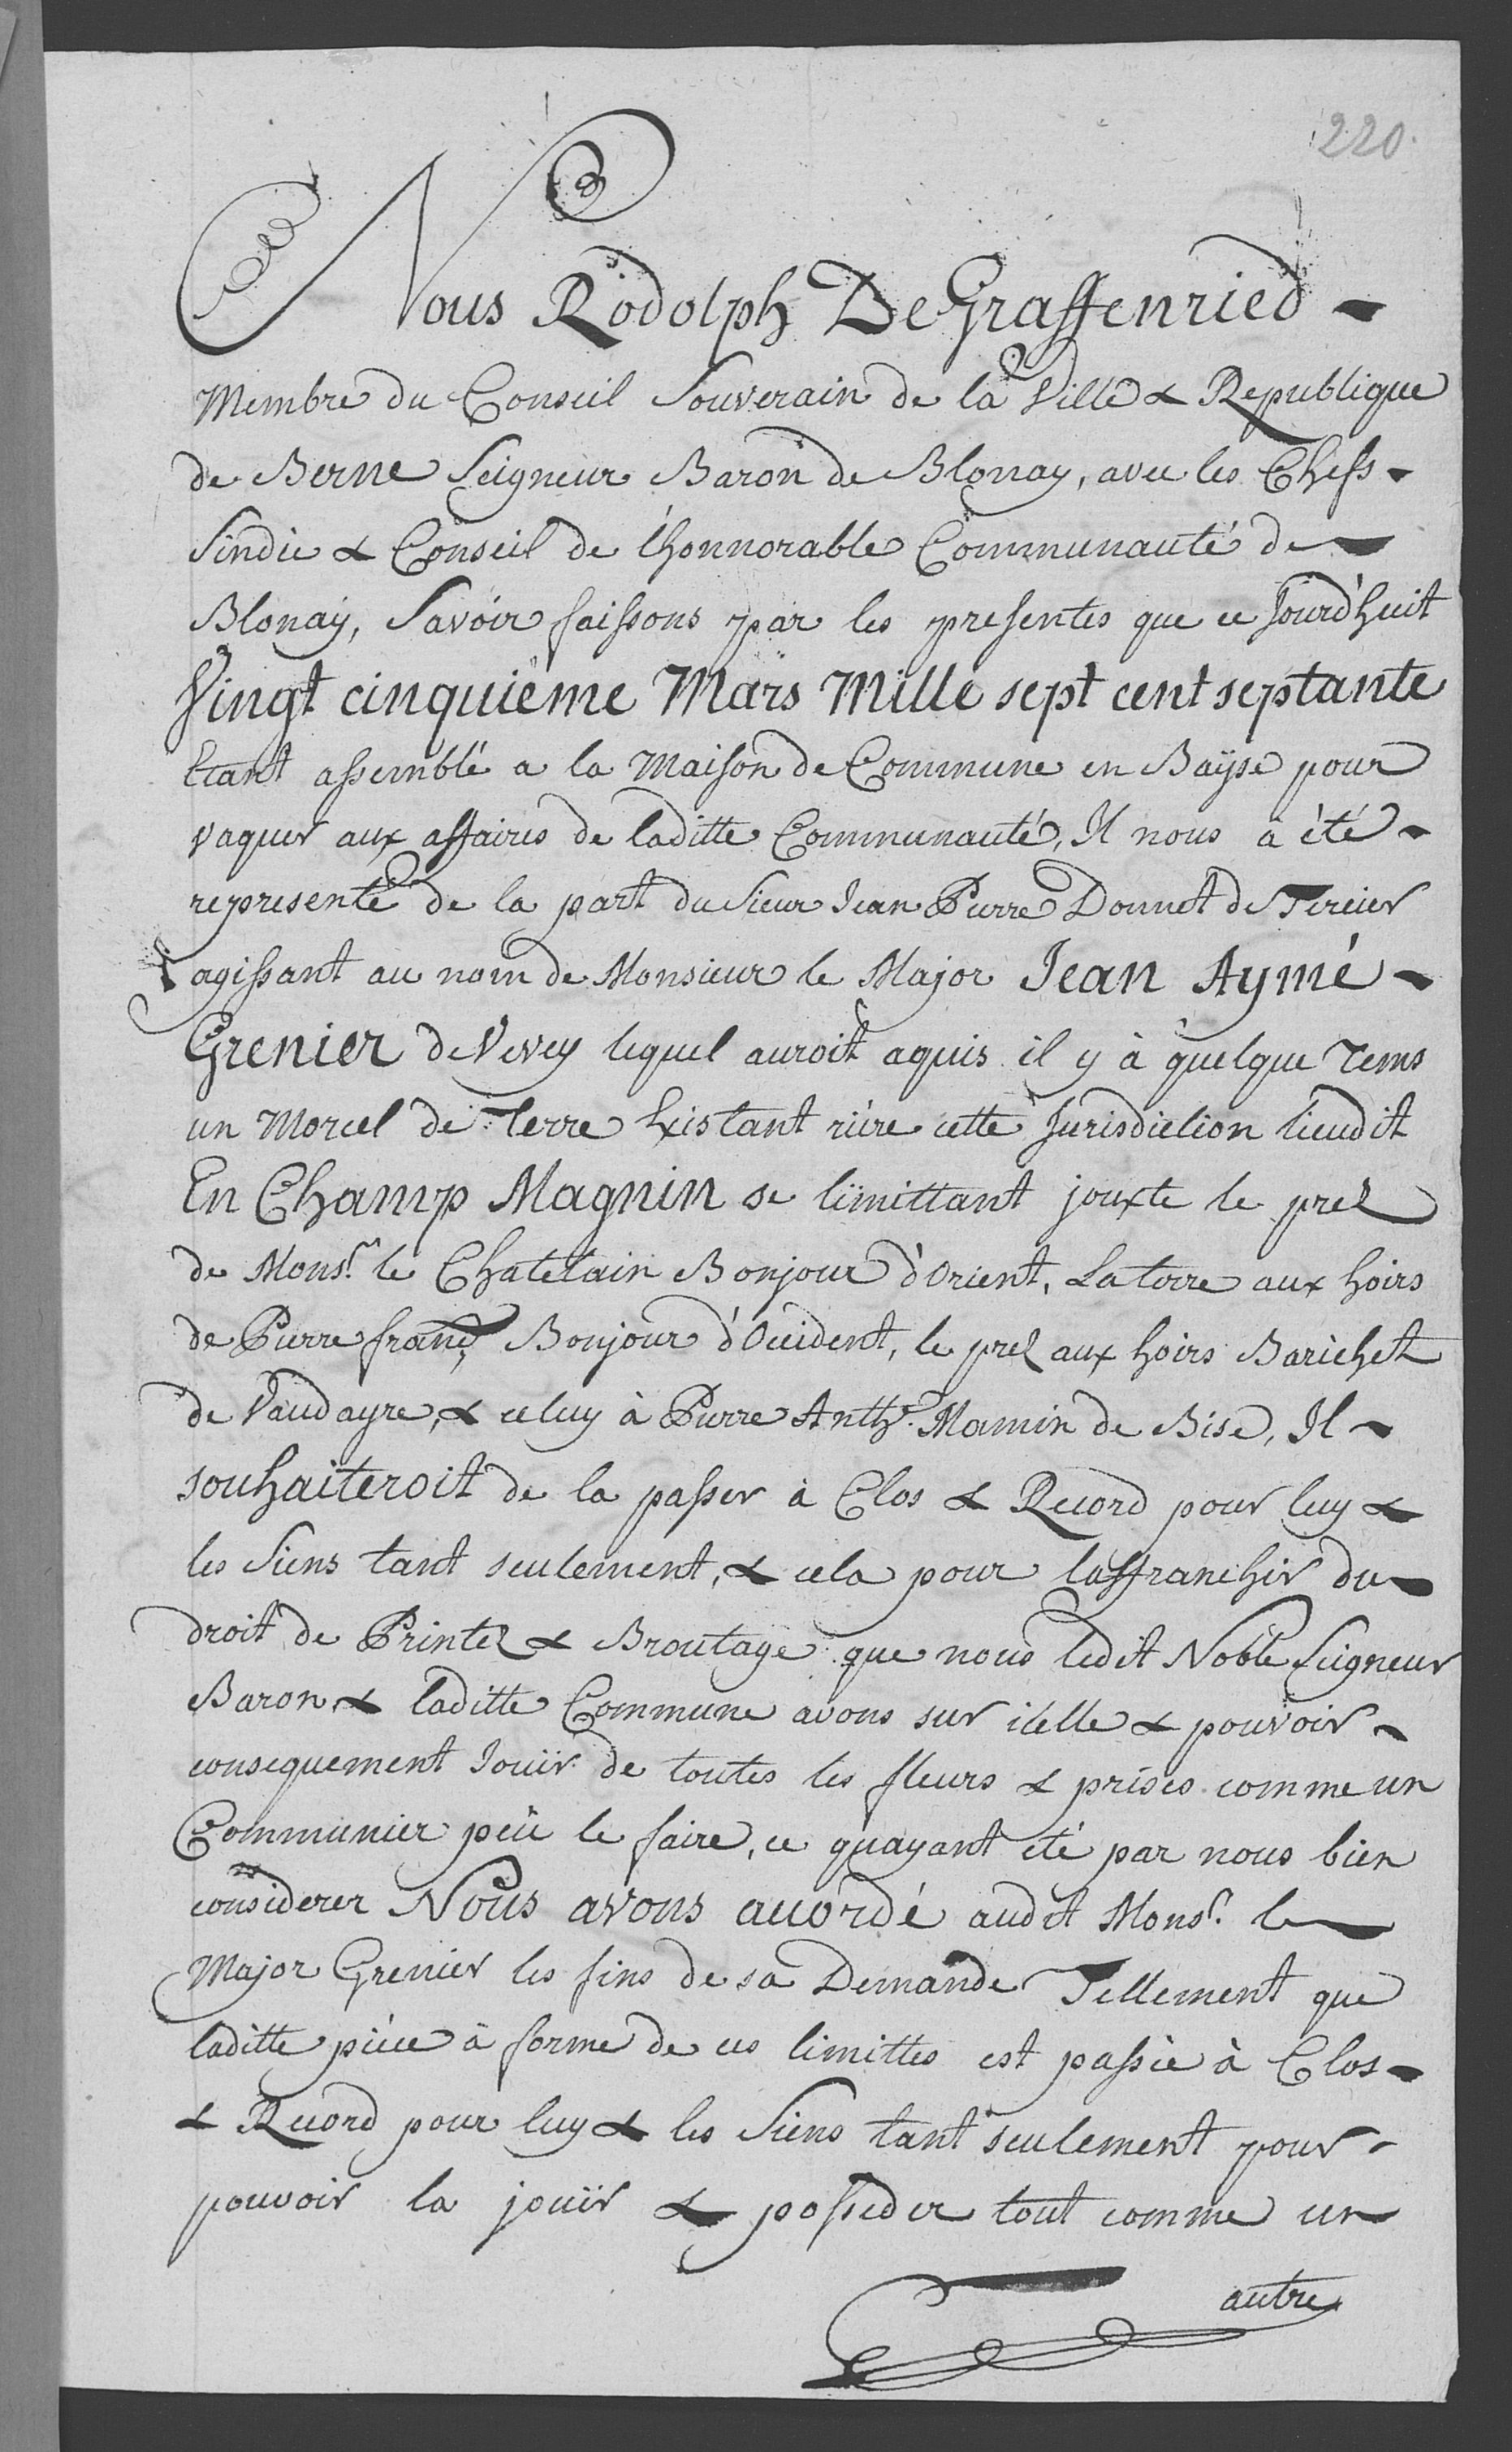 220.
Nous Rodolph De Graffenried
Membre du Conseil Souverain de la Ville & Republique
de Berne Seigneur Baron de Blonay, avec les Chefs
Sindic & Conseil de l'honnorable Communauté de
Blonay, Savoir faissons par les presentes que ce Jourd'huit
Vingt cinquième Mars Mille sept cent septante
Etant assemblé a la Maison de Commune en Bayse pour
vaquer aux affaires de laditte Communauté, Il nous à èté
representé de la part du Sieur Jean Pierre Donnet de Tercier
agissant au nom de Monsieur le Major Jean Aymé
Grenier de Vevey lequel auroit aquis il y à quelque Tems
un Morcel de Terre Existant riére cette Jurisdiction lieudit
En Champ Magnin se limittant jouxte le prel
de Monsr. le Chatelain Bonjour d'Orient, La terre aux hoirs
de Pierre franç. Bonjour d'Occident, le prel aux hoirs Barichet
de Vaudayre, & celuy à Pierre Anthe. Mamin de Bise, Il
souhaiteroit de la passer à Clos & Record pour luy &
les Siens tant seulement, & cela pour laffranchir du
droit de Printel & Broutage que nous ledit Noble Seigneur
Baron & laditte Commune avons sur icelle & pouvoir
consequement Jouïr de toutes les fleurs & prises comme un
Communier peüt le faire, ce quayant été par nous bien
considerer Nous avons accordé audit Monsr. le
Major Grenier les fins de sa Demande Tellement que
laditte piéce à forme de ces limittes est passée à Clos
& Record pour luy & les Siens tant seulement pour
pouvoir la jouïr & posseder tout comme un
autre